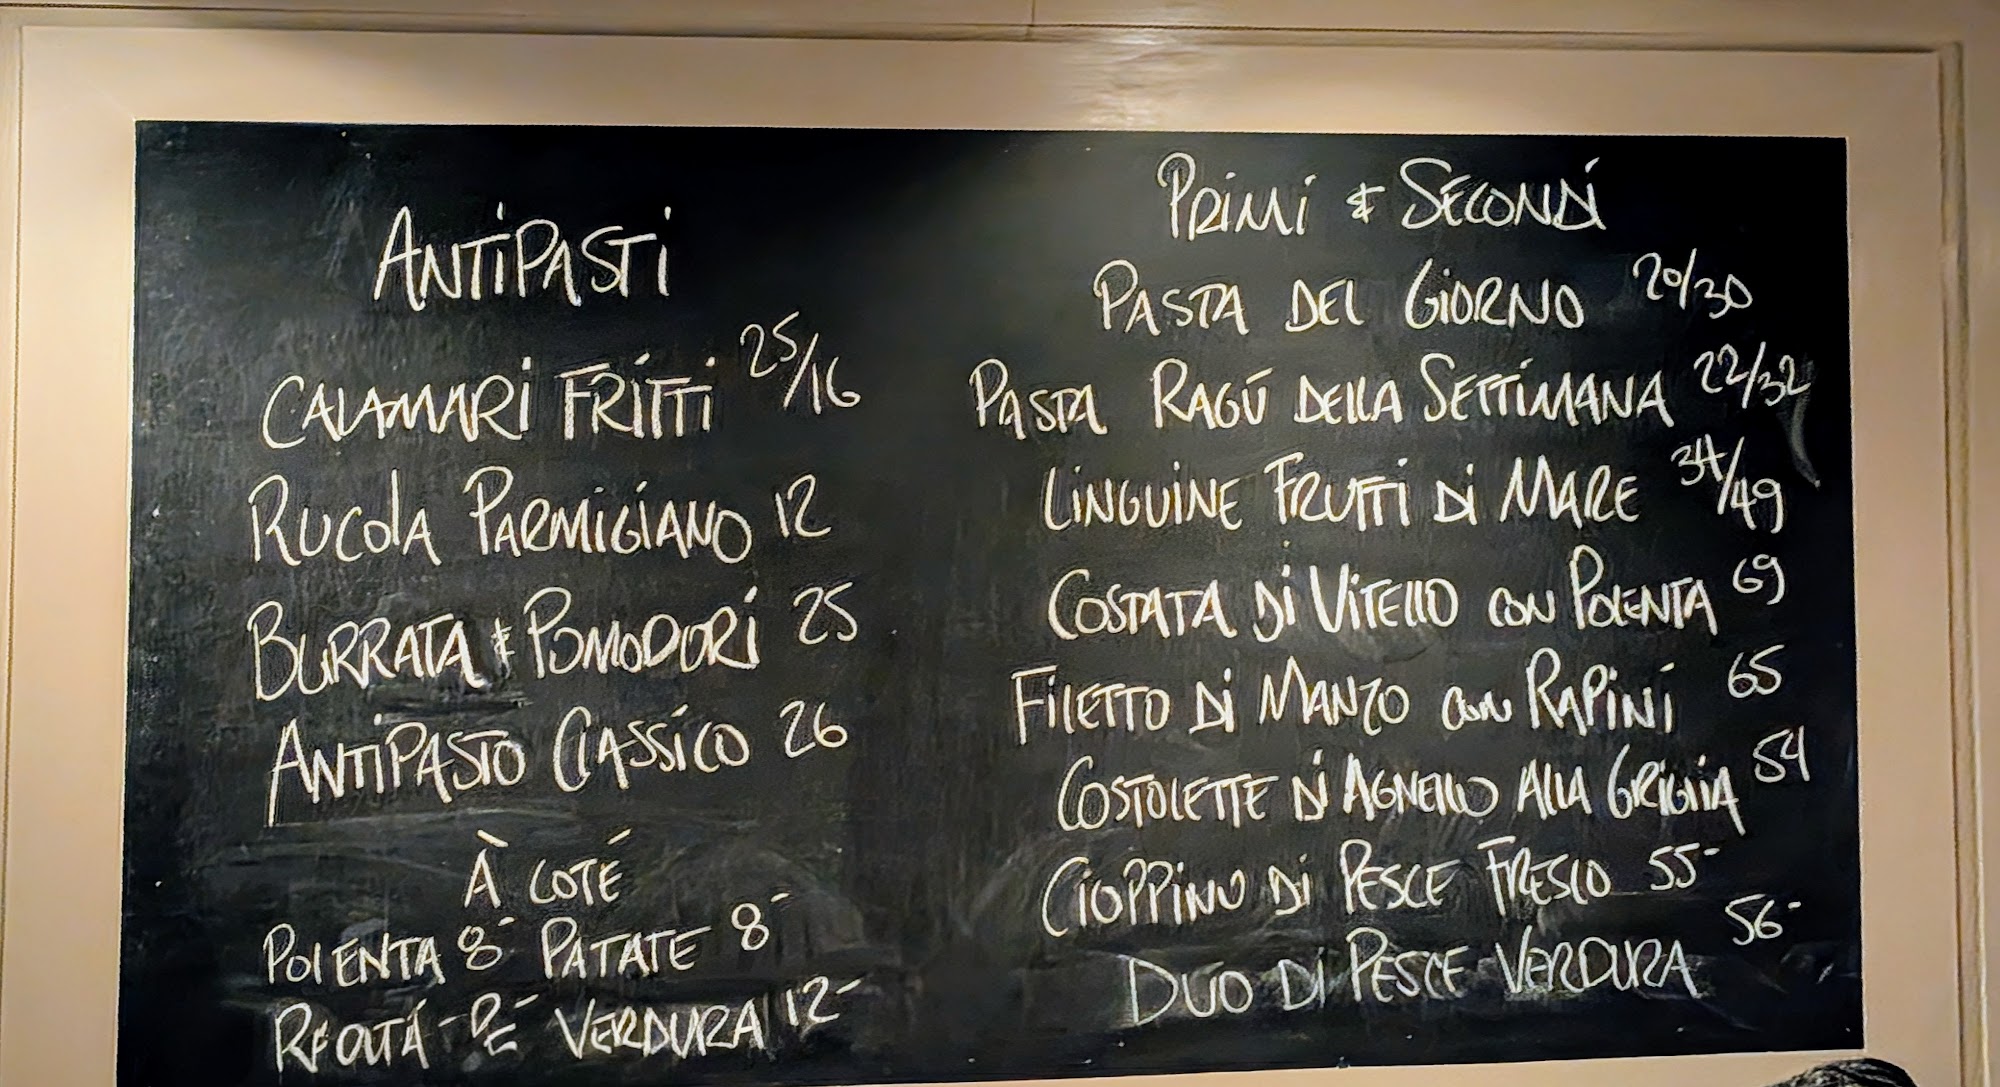 ANTIPASTI
CALAMARI FRITTI 25/16
RUCOLA PARMIGIANO 12
BURRATA & POMODORI 25
ANTIPASTO CLASSICO 26
À COTÉ
POLENTA 8- PATATE 8-
VERDURA 12-
PRIMI & SECONDI
PASTA DEL GIORNO 20/30
PASTA RAGÚ DELLA SETTIMANA 22/32
LINGUINE FRUTTI DI MARE 34/49
COSTATA DI VITELLO CON POLENTA 69
FILETTO DI MANZO CON RAPINI 65
COSTOLETTE DI AGNELLO ALLA GRIGLIA 54
CIOPPINO DI PESCE FRESCO 55-
DUO DI PESCE VERDURA 56-